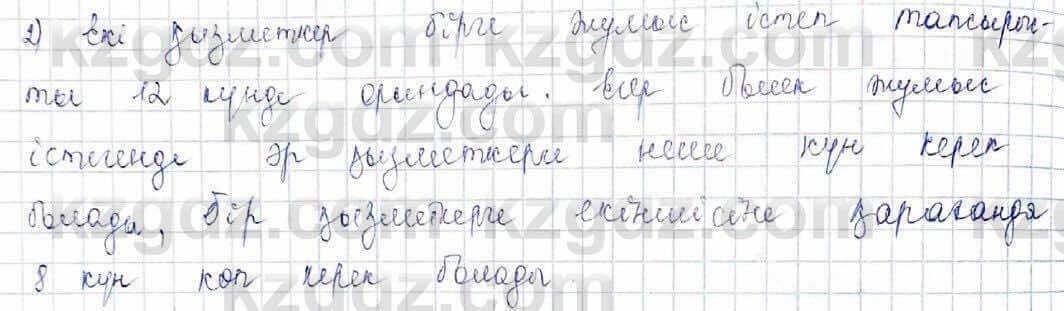 2) екі қызметкер бірге жұмыс істеп тапсырыс-
ты 12 күнде орындады. Егер бөлек жұмыс
істегенде әр қызметкерге неше күн керек
болады, бір қызметкерге екіншісіне қарағанда
8 күн көп керек болады